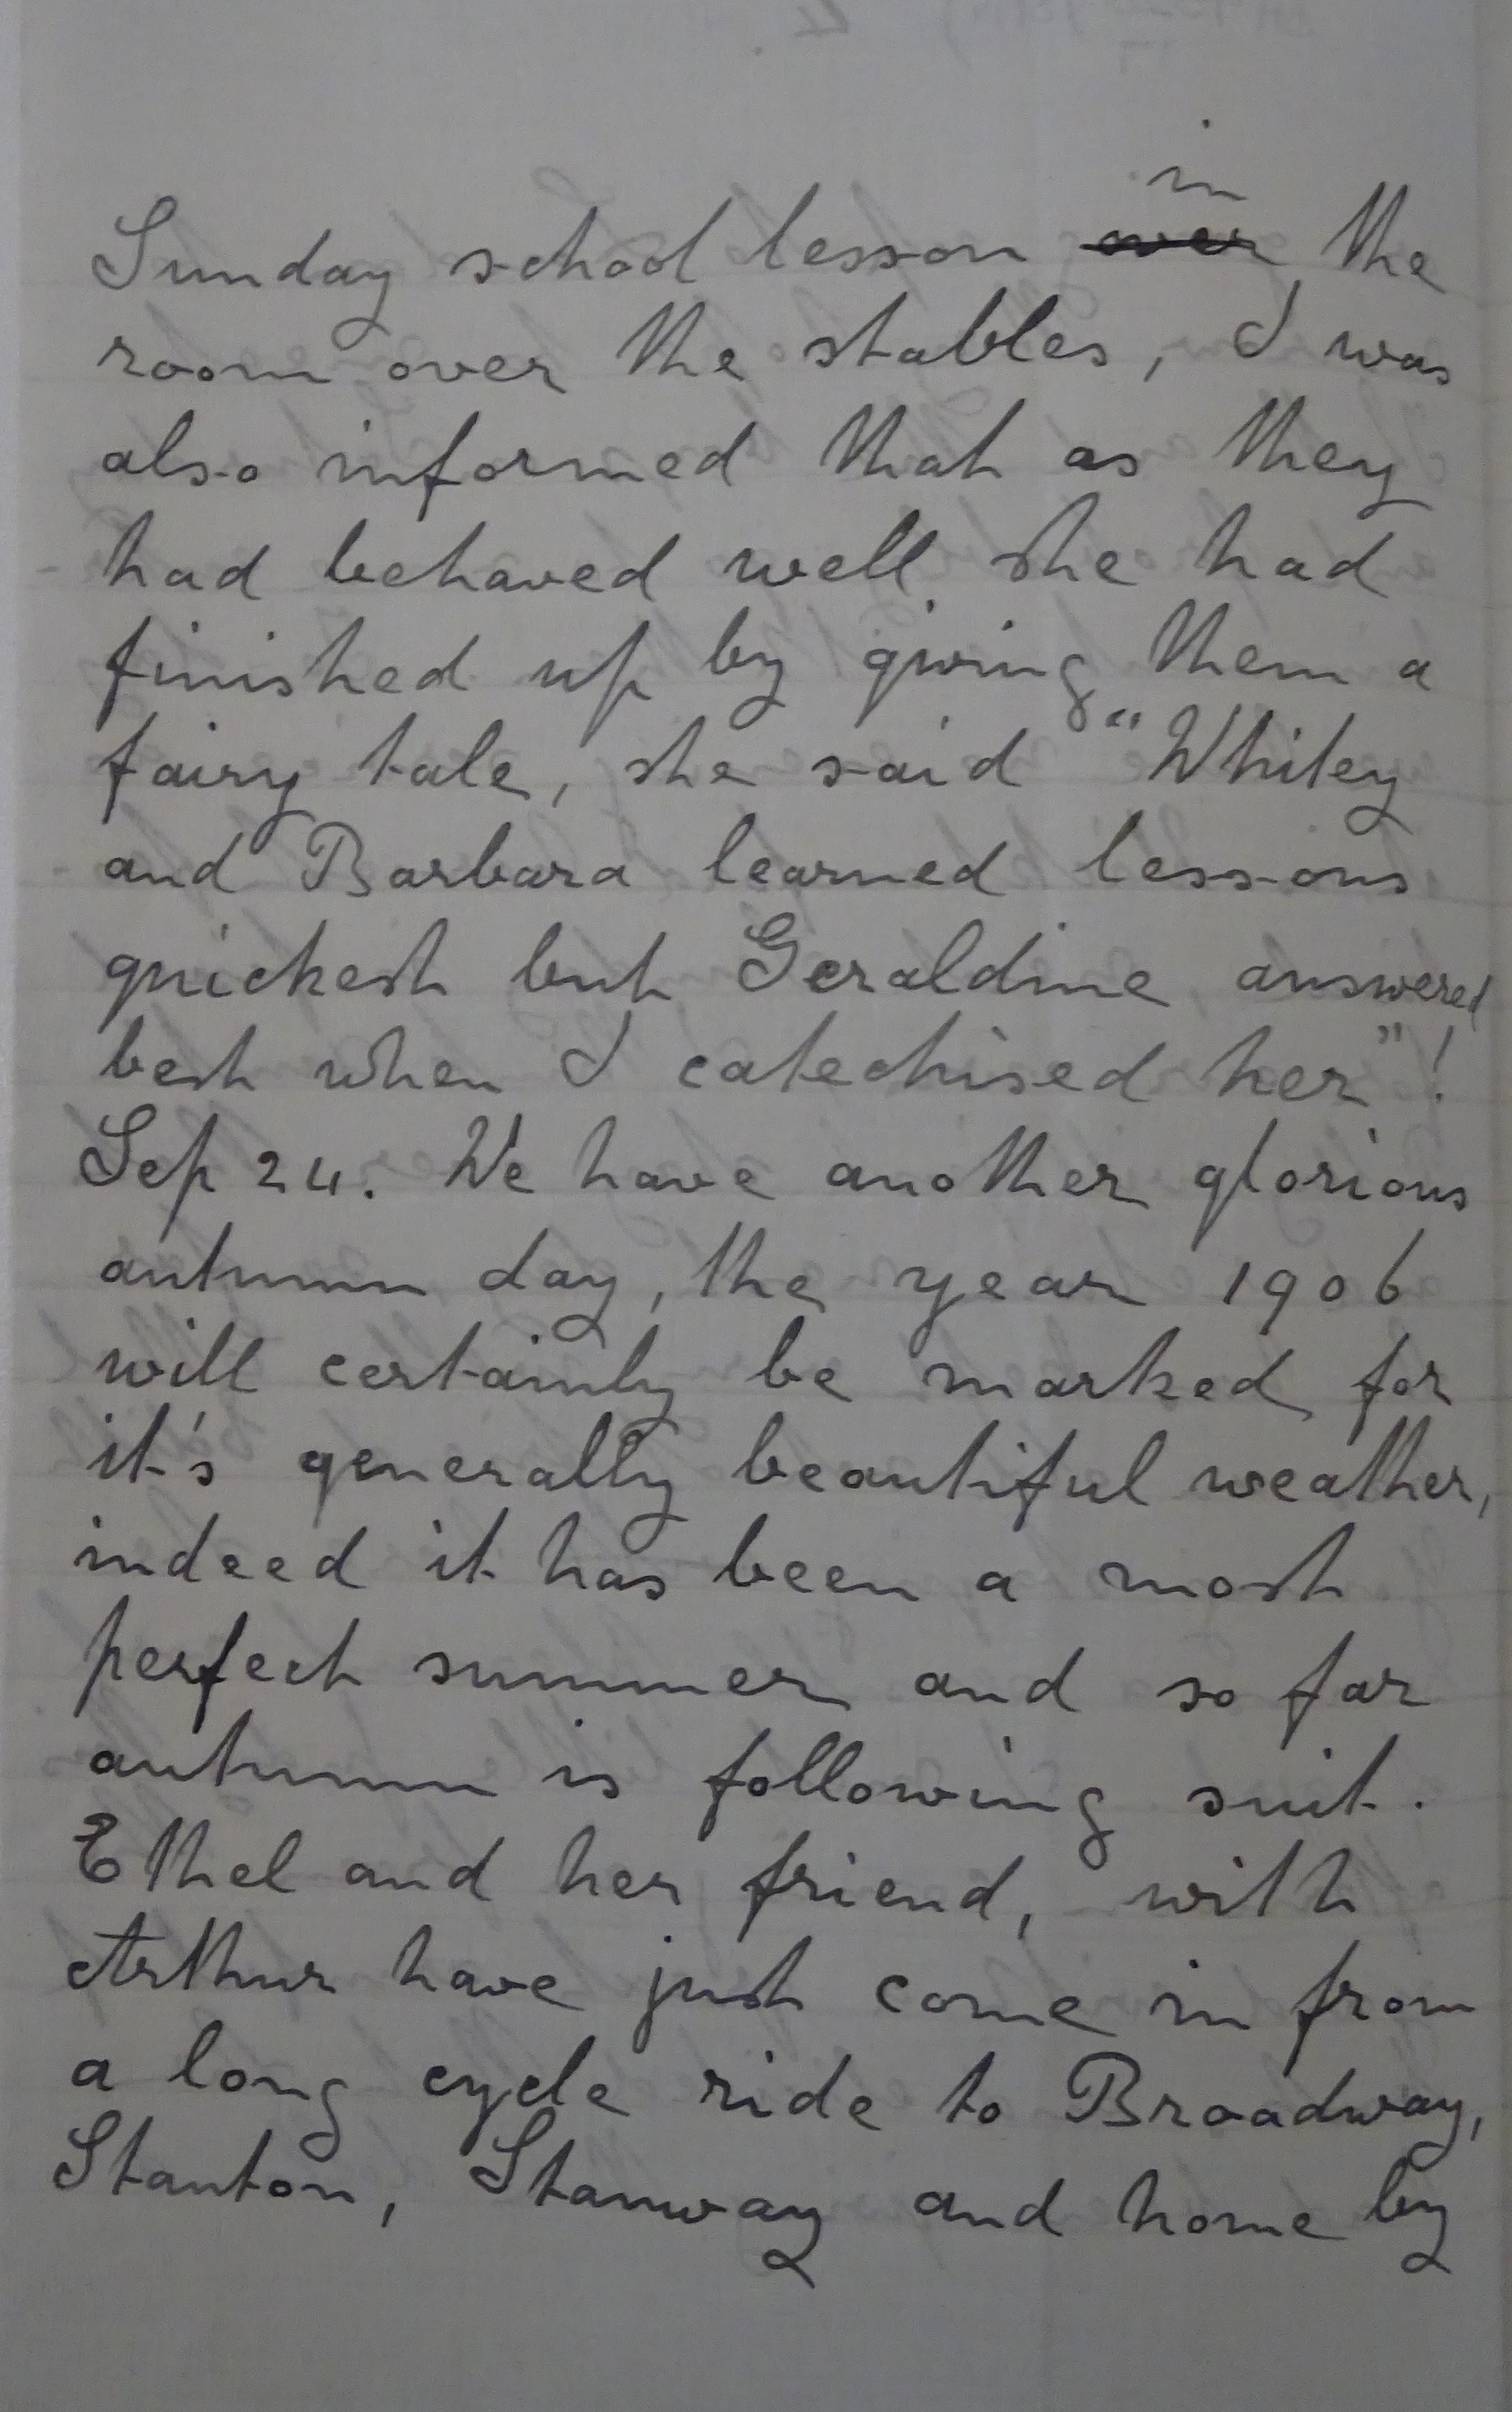 in
Sunday school lesson over the
room over the stables, I was
also informed that as they
had behaved well she had
finished up by giving them a
fairy tale, she said "Whitey
and Barbara learned lessons
quickest but Geraldine answered
best when I catechised her"!
Sep 24. We have another glorious
autumn day, the year 1906
will certainly be marked for
it's generally beautiful weather,
indeed it has been a most
perfect summer and so far
autumn is following suit.
Ethel and her friend, with
Arthur have just come in from
a long cycle ride to Broadway,
Stanton, Stanway and home by